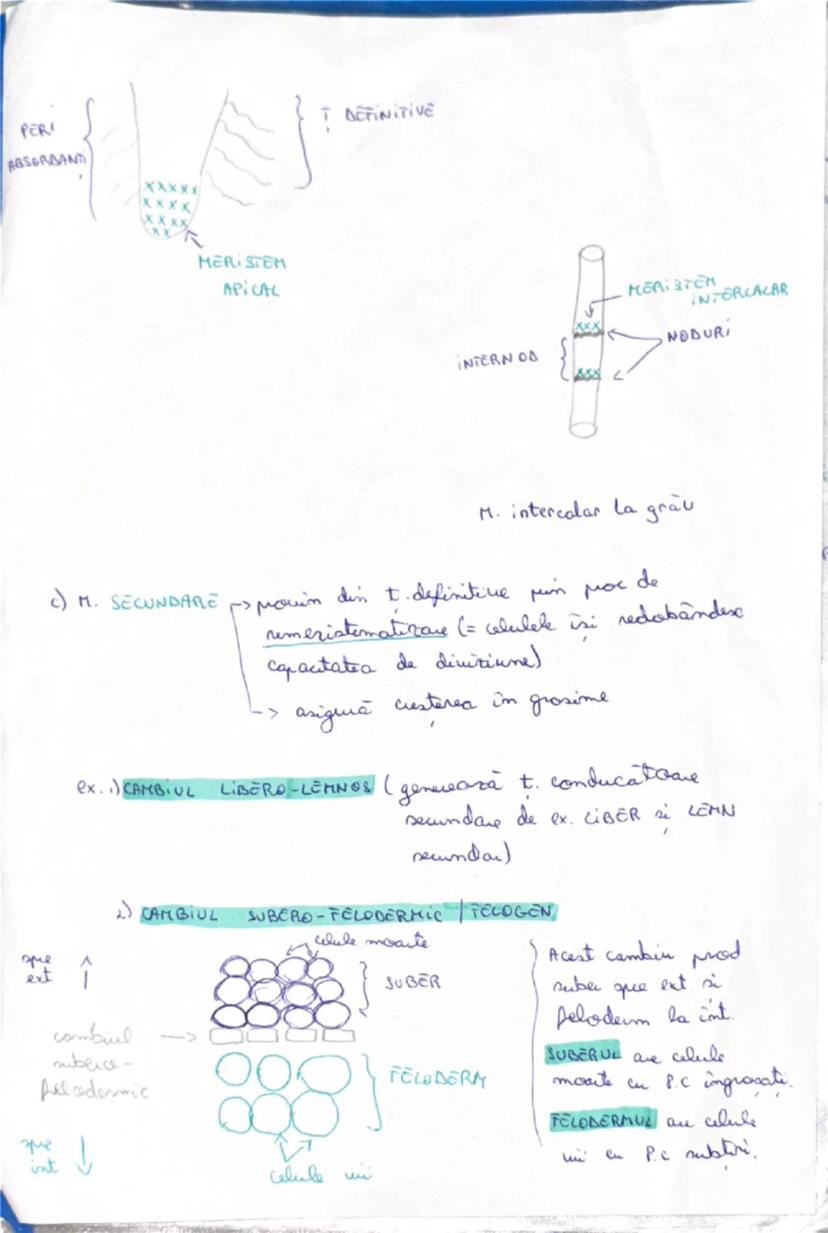 PERI
ABSORBANȚI
Ț DEFINITIVE
MERISTEM
APICAL
MERISTEM
INTERCALAR
NODURI
INTERNOD
M. intercalar la grâu
c) M. SECUNDARE -> provin din ț. definitive prin proc de
remeristematizare (= celulele își redobândesc
capacitatea de diviziune)
-> asigură creșterea în grosime
ex. 1) CAMBIUL LIBERO-LEMNOS (generează ț. conducătoare
secundare de ex. LIBER și LEMN
secundar)
2) CAMBIUL SUBERO-FELODERMIC / FELOGEN
celule moarte
spre
ext
SUBER
cambiul
subero-
felodermic
FELODERM
spre
int
celule vii
Acest cambiu prod
suber spre ext și
feloderm la int.
SUBERUL are celule
moarte cu P.C îngroșați.
FELODERMUL are celule
vii cu P.C subțiri.